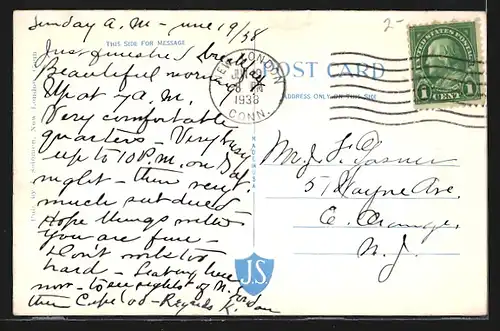 Sunday A.M - June 19/38
THIS SIDE FOR MESSAGE
Just finished
Beautiful morn
Up at 7 A.M.
Very comfortable
quarters - Very busy
up to 10 P.M. on Sat
night - then very
much subdued -
Hope things with
you are fine -
Don't work too
hard - Leaving here
now - to see sights of N. London
then Cape Cod - Regards K.
NEW LONDON
JUN 19
8 PM
1938
CONN.
POST CARD
ADDRESS ONLY ON THIS SIDE
UNITED STATES POSTAGE
1 CENT 1
2-
MADE IN U.S.A.
Mr J. F.
51 Wayne Ave.
E. Orange
N. J.
J.S.
New London, Conn